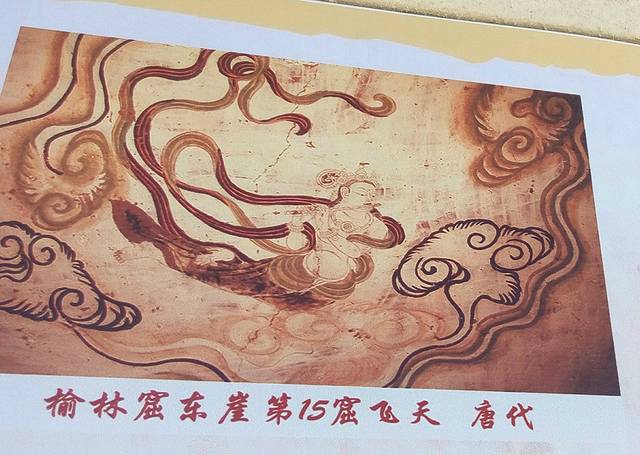 榆林窟东崖第15窟飞天 唐代